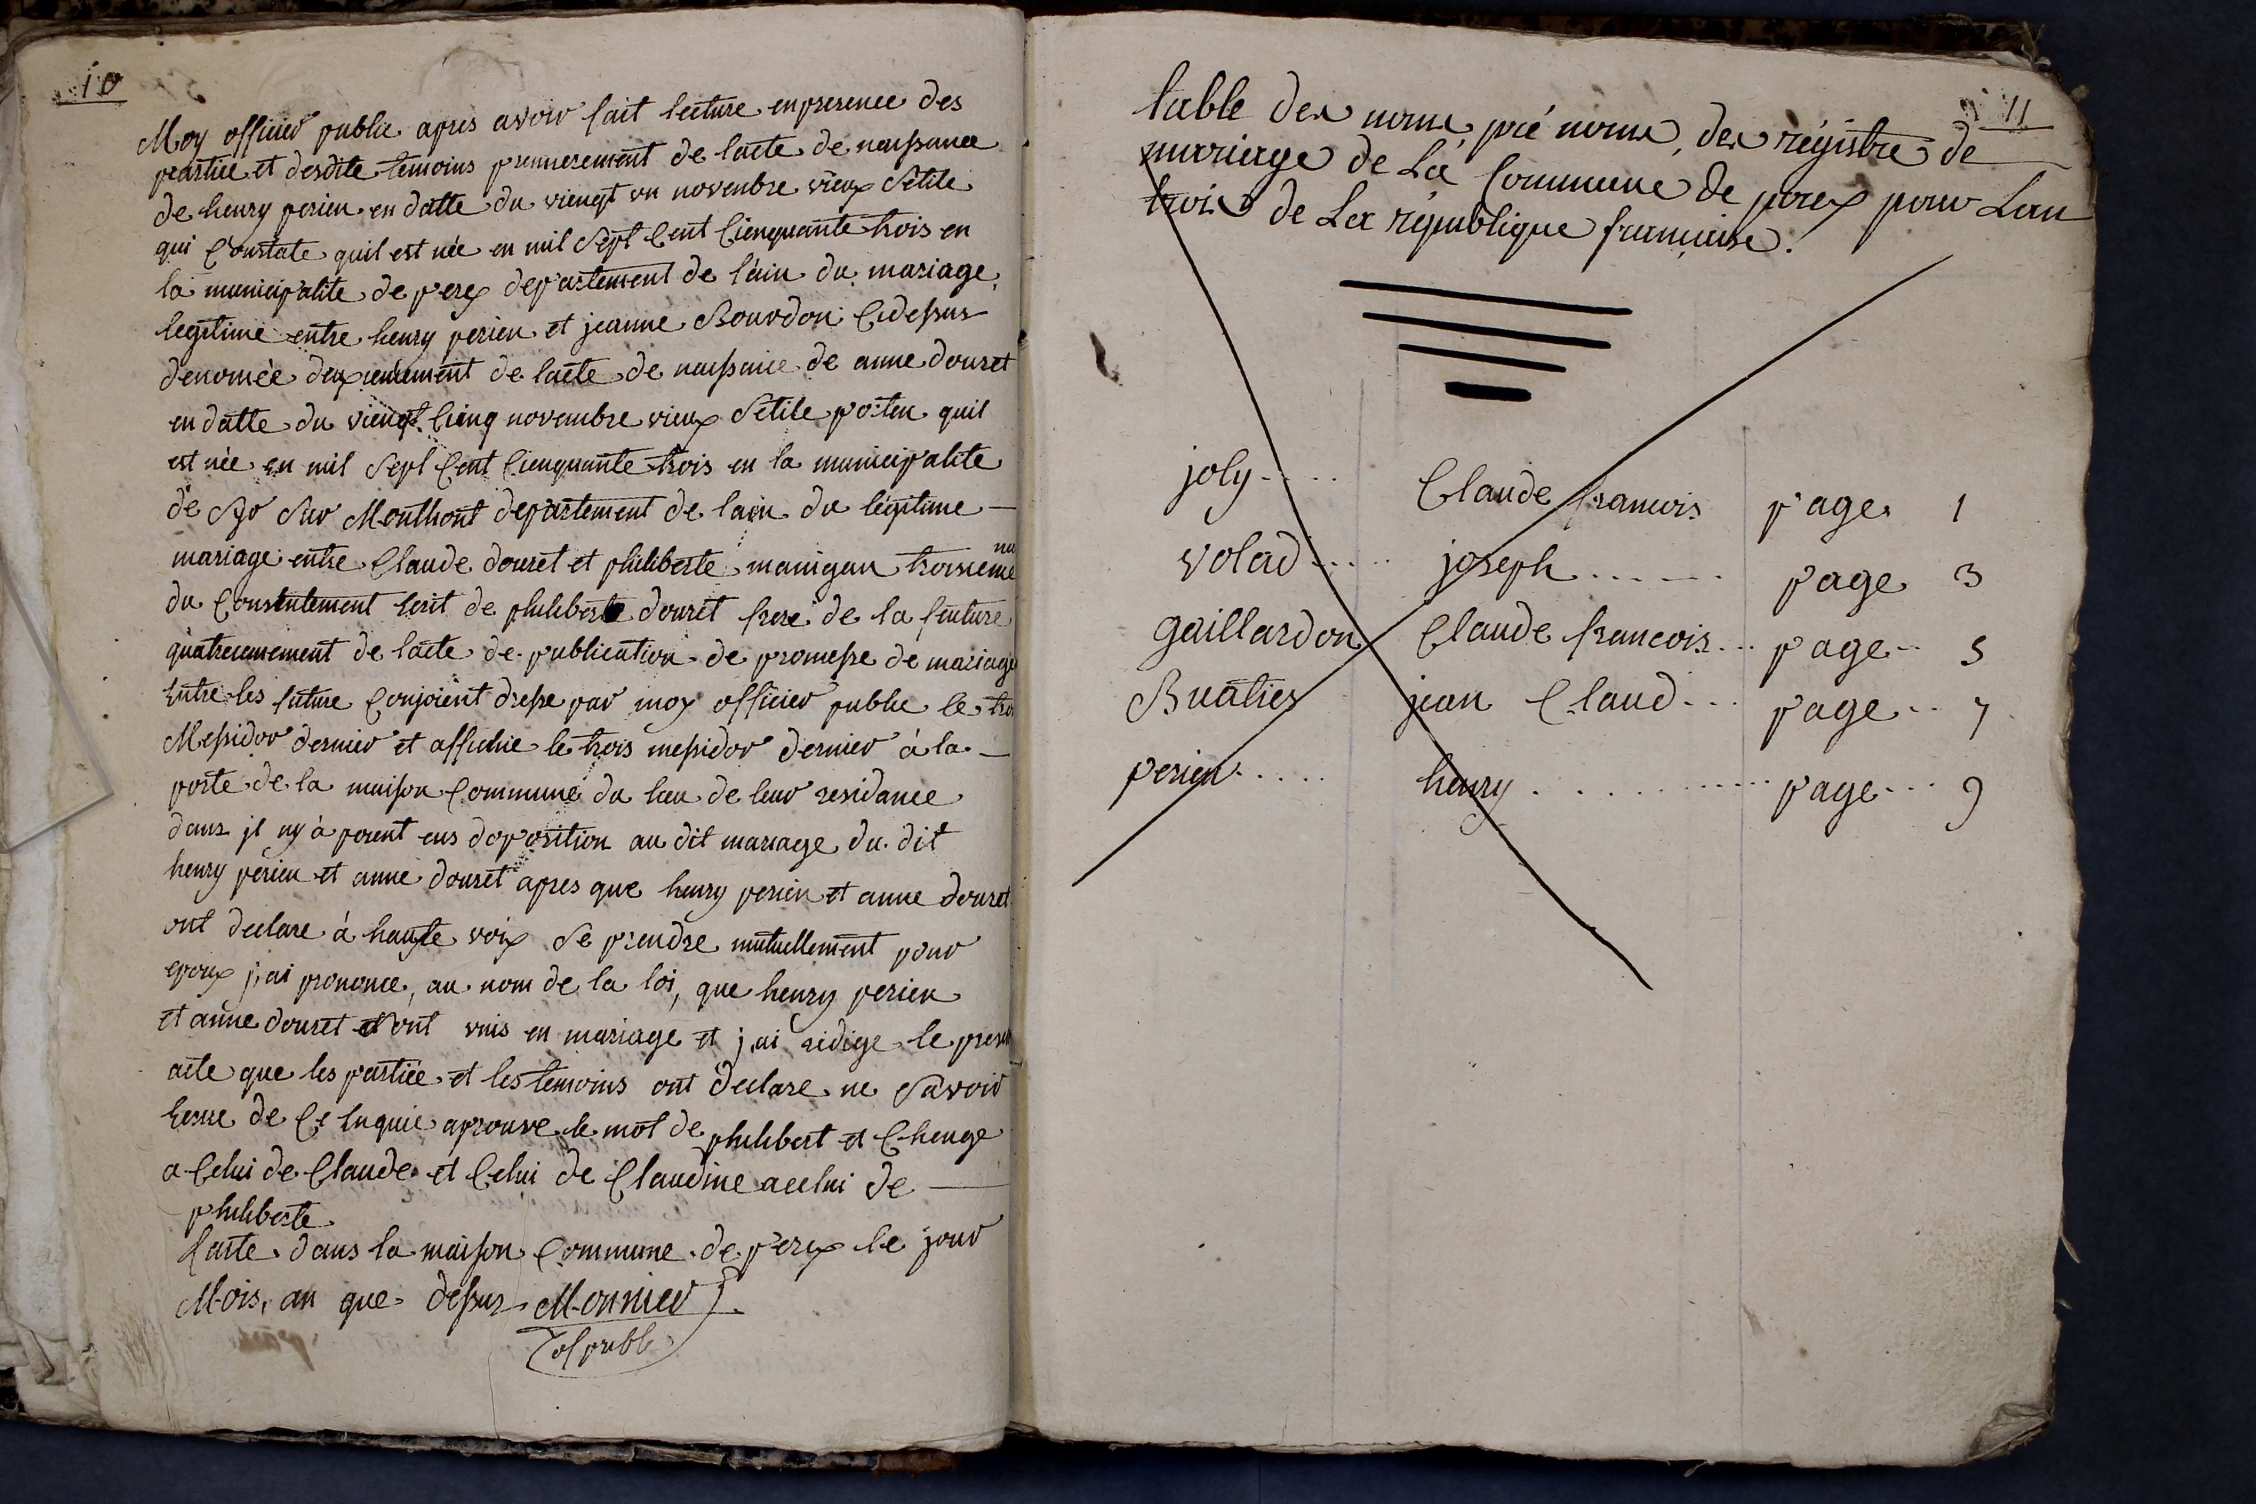 10
Moy officier public apres avoir fait lecture en presence des
partiee et desdite temoins premierement de lacte de naissance
de henry perien en datte du viengt un novembre vieux Setile
qui Constate quil est née en mil Sept Cent Cienquante trois en
la municipalite de perex departement de l'ain du mariage
legitime entre henry perien et jeanne Bourdon Cidessus
denomèe deuxiemement de lacte de naissance de anne douret
en datte du viengt Cienq novembre vieux Setile porten quil
est née en mil Sept Cent Cienquante trois en la municipalite
de Sur Monthont departement de lain du légitime
mariage entre Claude douret et philiberte manigan troisieme
du Consentement herit de philiberte douret frere de la future
quatriemement de lacte de publication de promesse de mariage
Entre les future Conjoient dresse par moy officier public le
Messidor dernier et affichie le trois messidor dernier à la
porte de la maison Commune du lieu de leur residance
dans jl ny à poient eus doposition au dit mariage du dit
henry perien et anne douret apres que henry perien et anne douret
ont declare à haute voix Se prendre mutuellement pour
epoux j,ai prononce, au nom de la loi, que henry perien
et anne douret Sont unis en mariage et j,ai redige le presen
acte que les partiée et les temoins ont declare ne Savoir
de Ce aprouve le mot de philibert et Chenge
a Celui de Claude et Celui de Claudine acelui de
philiberte
faite dans la maison Commune de perex le jour
Mois, an que dessus Monnier
of publ
11
table des noms pré noms, des régistre de
mariage de La Commune de perex pour Lan
trois de La république française.
joly..... Claude francois page 1
volad..... joseph...... page 3
gaillardon Claude francois... page.. 5
Buatier jean Claud... page.. 7
perien..... henry............ page... 9